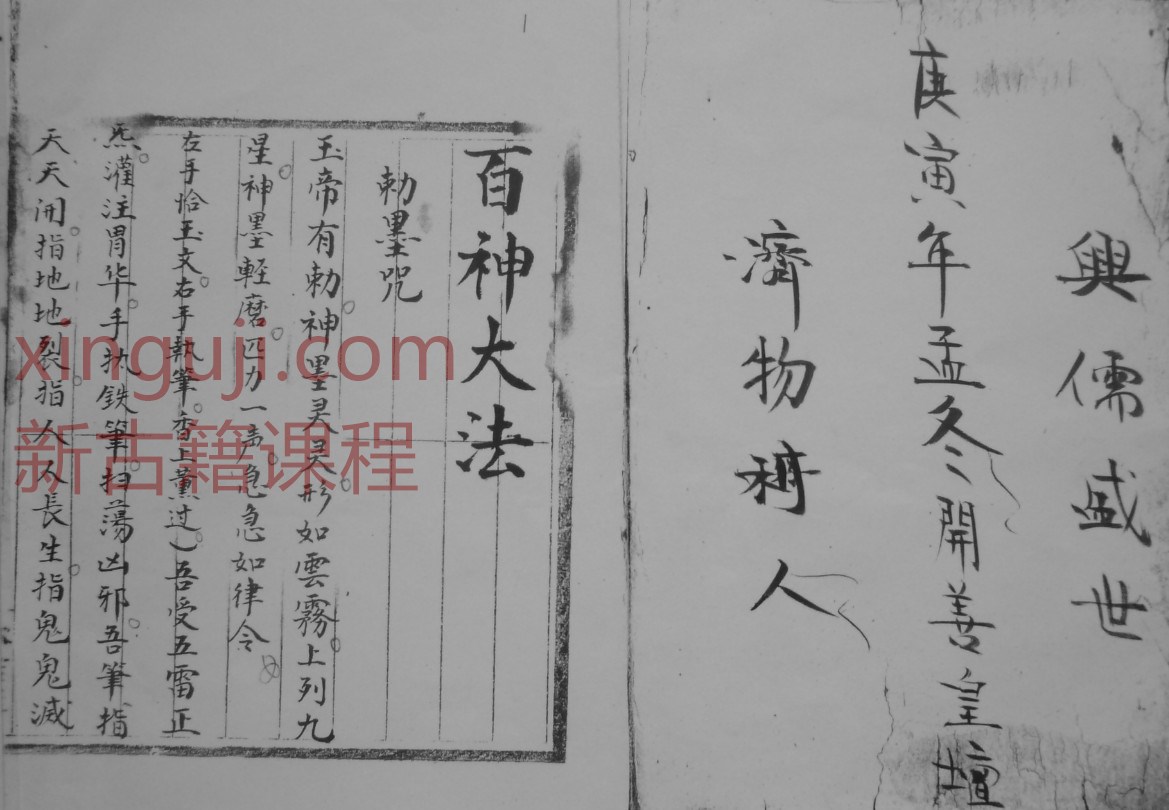 興儒盛世
庚寅年孟冬開善皇壇
濟物人
百神大法
勅墨咒
玉帝有勅神墨灵灵形如雲霧上列九
星神墨輕磨匹力一声急急如律令
右手恰玉文右手執筆香上薰过）吾受五雷正
炁灌注胃华手执鉄筆扫蕩凶邪吾筆指
天天開指地地裂指人人長生指鬼鬼滅
xinguji.com
新古籍课程